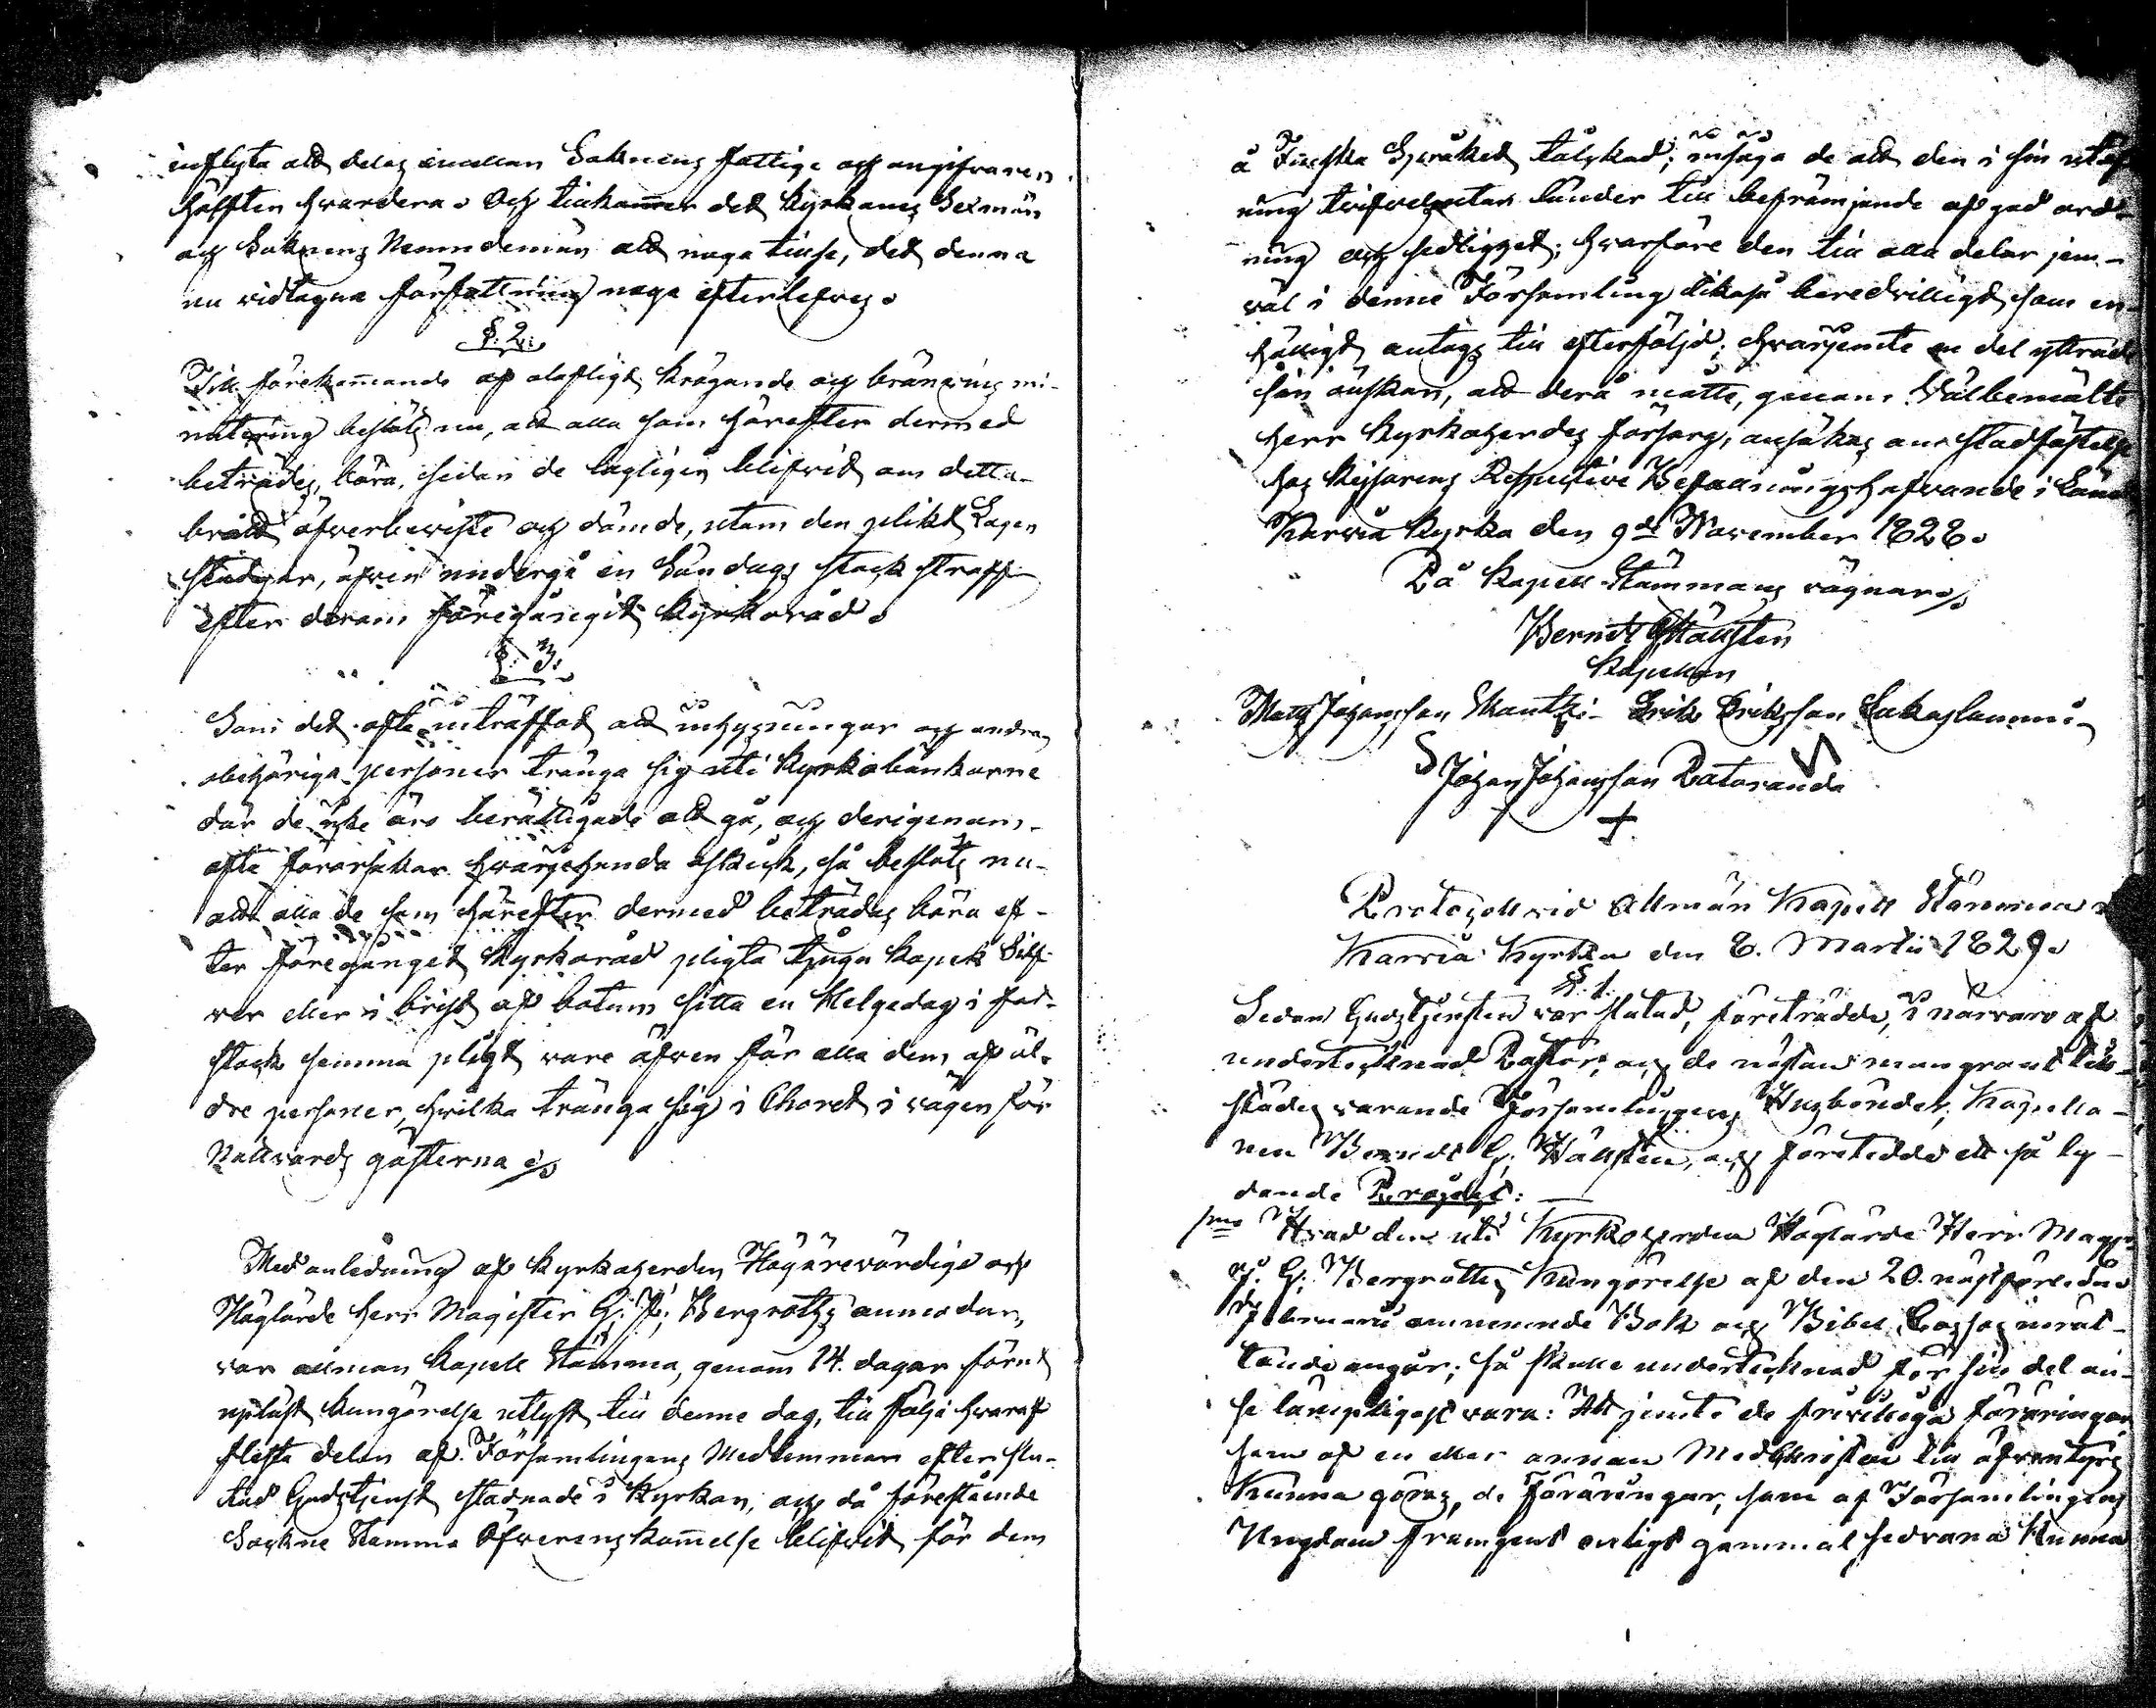 inflyta att delas emellan Soknens fattige och angifvaren
hälften hvardera. Och tillkommer det Kyrkans Sexmän
och Soknens Nemndemän att noga tillse, det denna
nu vidtagna författning noga efterlefves.
§. 2.
Till förekommande af olofligt krögande och bränvins mi-
nutering beslöts nu, att alla som härefter dermed
beträdes, böra, sedan de lagligen blifvit om detta
brott öfverbeviste och dömde, utom den plikt Lagen
stadgar, äfven undergå en Söndags stock straff
efter derom föregånget Kyrkoråd.
§. 3.
Som det ofta inträffat att inhysningar och andra
obehöriga personer tränga sig uti Kyrkobänkarne
där de icke äro berättigade att gå, och derigenom
ofta förorsakar hvarjehanda oskick, så beslöts nu
att alla de som härefter dermed beträdes böra ef-
ter föregånget Kyrkoråd pligta tjugu Kopek Silf-
ver eller i brist af botum sitta en Helgedag i fot-
stock samma pligt vare äfven för alla dem af äl-
dre personer, hvilka tränga sig i Choret i vägen för
Nattvards gästerna
Med anledning af Kyrkoherden Högärevördige och
Höglärde Herr Magister G. J. Bergroths anmodan,
var allmän Kapell Stämma, genom 14. dagar förut
upläst kungörelse utlyst till denne dag, till följe hvaraf
flesta delen af Församlingens Medlemmar efter slu-
tad Gudstjenst stadnade i Kyrkan, och då förestående
Sockne Stamma Öfverenskommelse blifvit för dem
å Finska Språket tålkad; insågo de att den i sin utöf-
ning tvifvelsutan länder till befrämjande af god ord-
ning och sedlighet; hvarföre den till alla delar jem-
väl i denne Församling likaså beredvilligt som en-
hälligt antogs till efterföljd; hvarjemte en del yttrade
sin önskan, att derå måtte, genom Välbemälte
Herr Kyrkoherdes försorg, ansökas om stadfästelse
hos Kejsarens Respective Befallningshafvande i Länet
Karvia Kyrka den 9de November 1828.
På Kapell Stämmans vägnar
Berndt G Hällsten
Kapellan
Matts Johansson Mantti Erik Eriksson Lukaslammi
Johan Johansson Rataranda
Protocoll vid Allmän Kapell Stämma
Karvia Kyrka den 8. Martii 1829.
§. 1.
Sedan Gudstjensten var slutad, företrädde, i närvaro af
undertecknad Pastor, och de nästan mangrant till-
städes varande Församlingens Husbönder, Kapella-
nen Berndt G. Hällsten, och företedde ett så ly-
dande Project:
1mo Hvad den uti Kyrkoherden Höglärde Herr Mag
J. G. Bergroths Kungörelse af den 20. nästförledne
Februarii omnämnde Bok och Bibel
angår; så skulle undertecknad för sin del an-
se lämpligast vara: Att jemte de frivilliga föräringar
som af en eller annan Medchristen till äfventyrs
kunna göras, de Föräringar, som af Församlingens
Ungdom framgent enligt gammal sedvana kunna